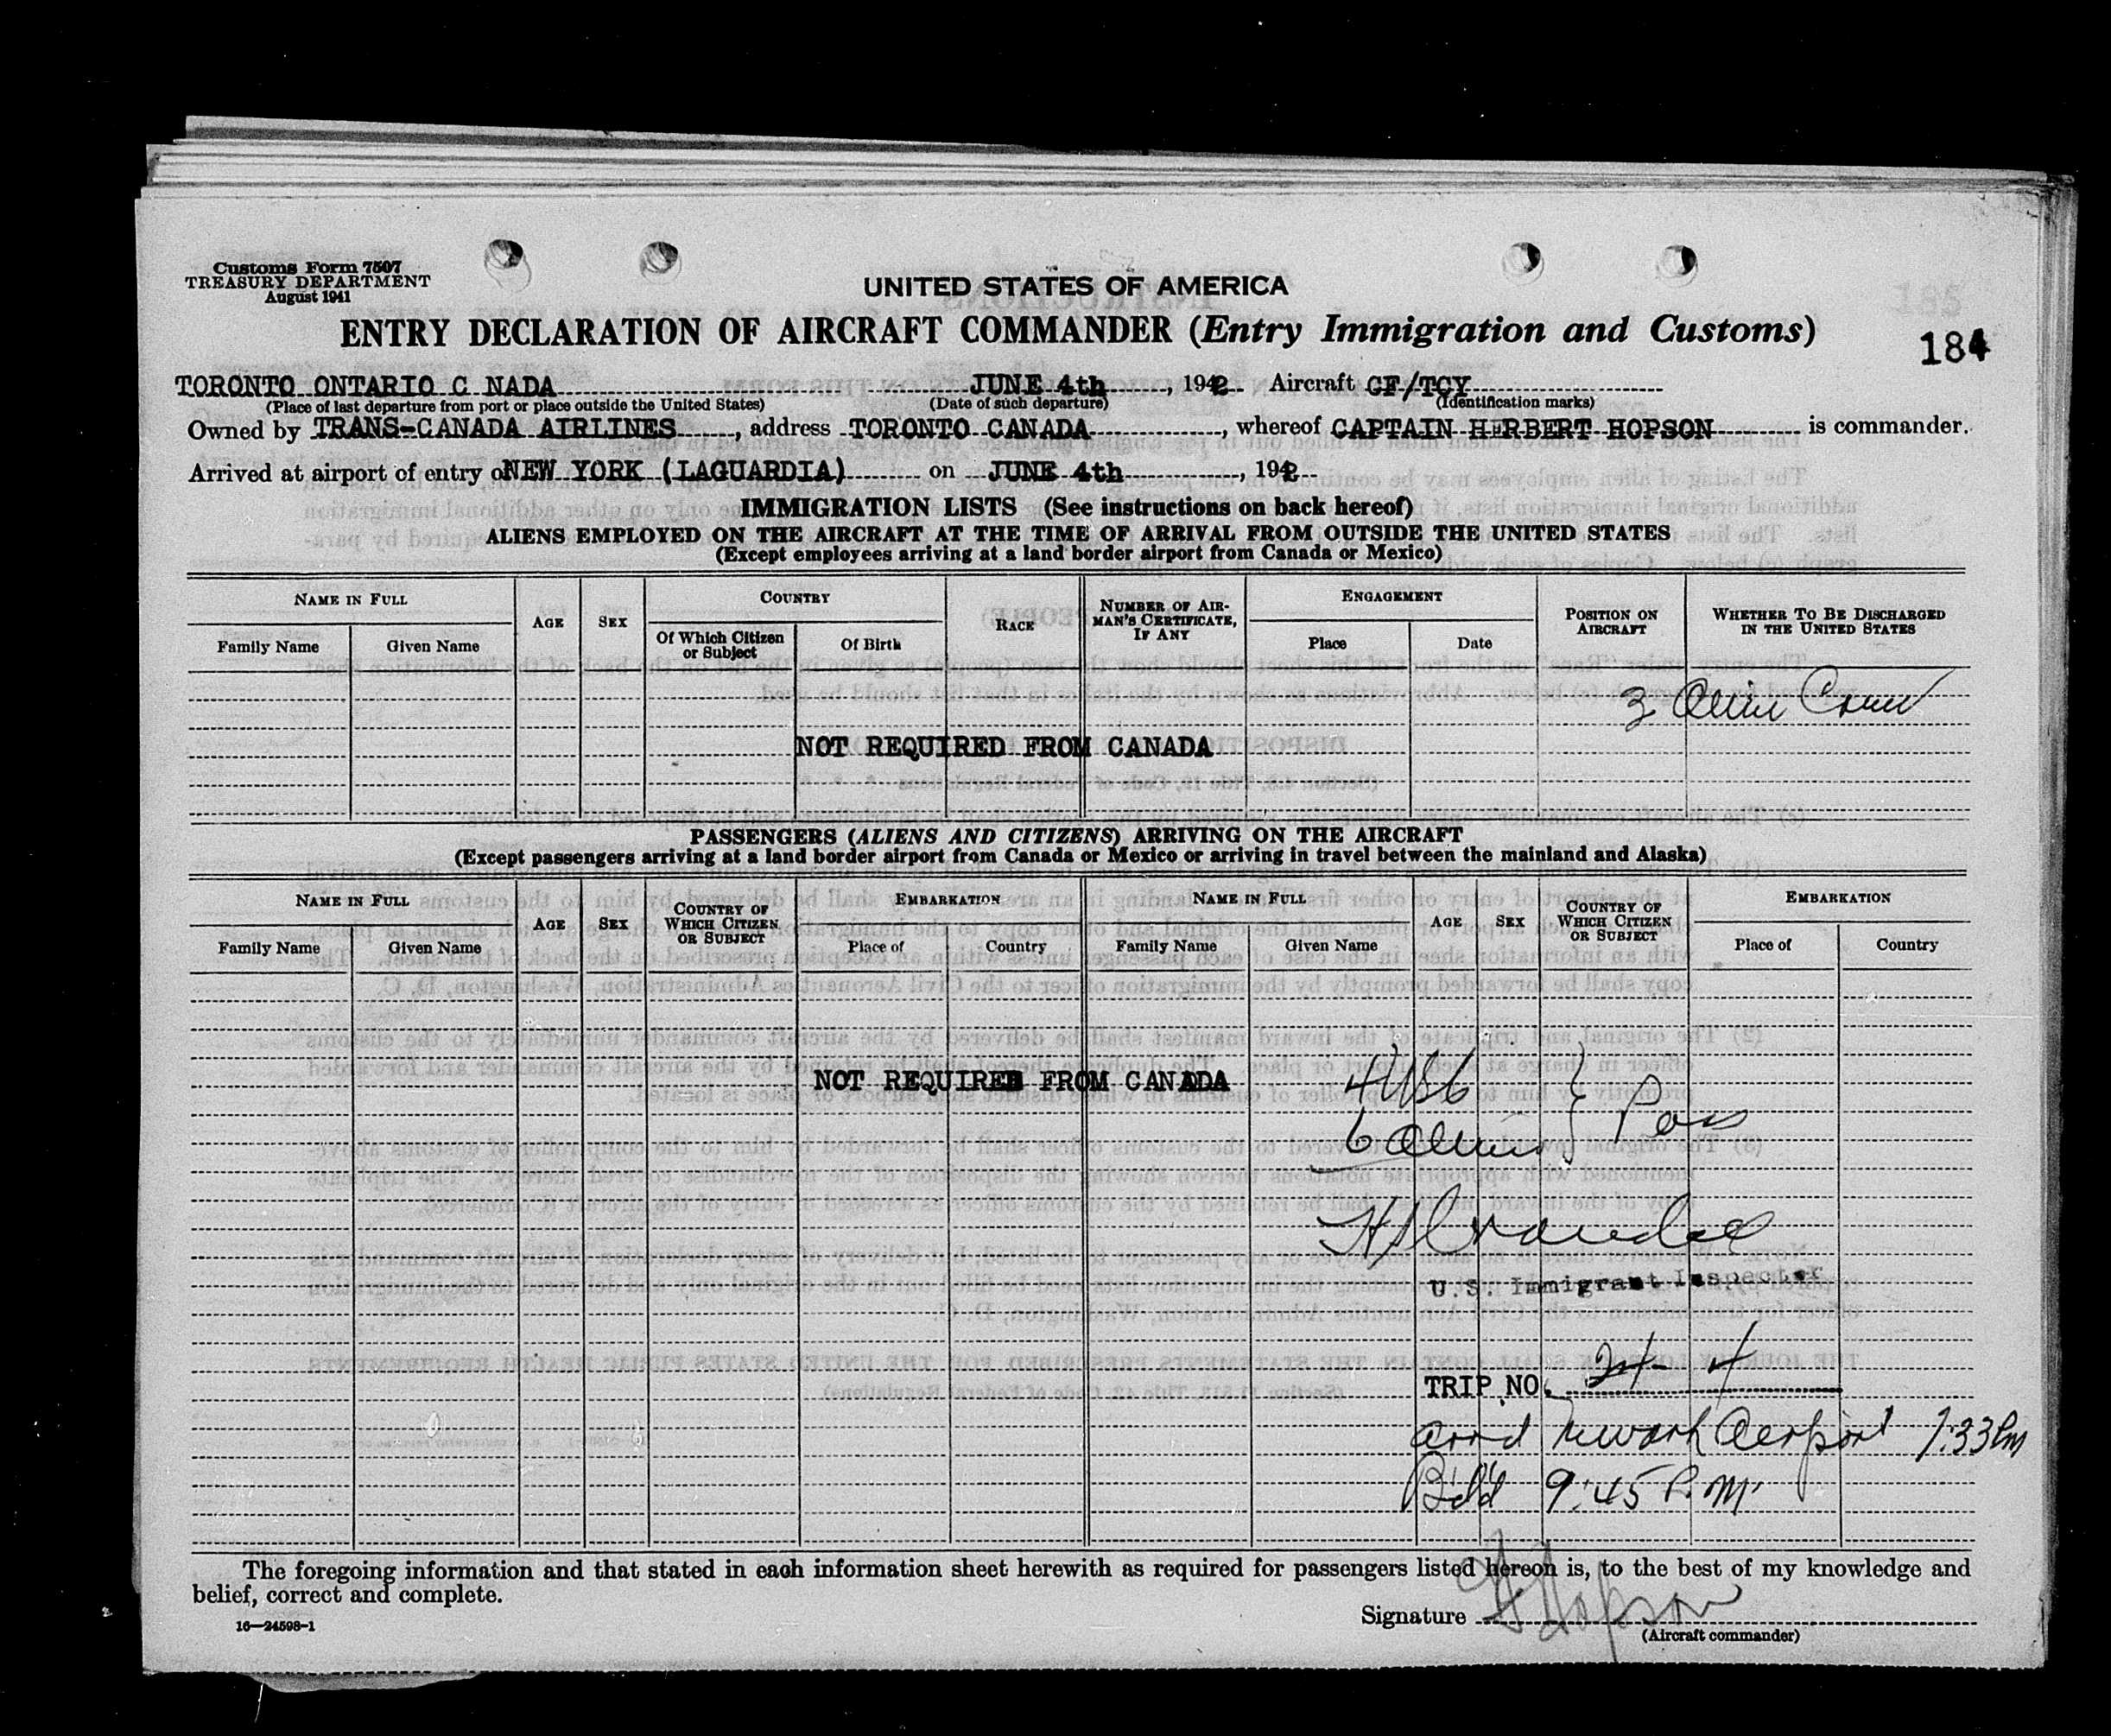 Customs Form 7507
TREASURY DEPARTMENT
August 1941
UNITED STATES OF AMERICA
ENTRY DECLARATION OF AIRCRAFT COMMANDER (Entry Immigration and Customs)
184
TORONTO ONTARIO C NADA JUNE 4th, 1942 Aircraft CF/TCY
(Place of last departure from port or place outside the United States) (Date of such departure) (Identification marks)
Owned by TRANS-CANADA AIRLINES, address TORONTO CANADA, whereof CAPTAIN HERBERT HOPSON is commander.
Arrived at airport of entry of NEW YORK (LAGUARDIA) on JUNE 4th, 1942
IMMIGRATION LISTS (See instructions on back hereof)
ALIENS EMPLOYED ON THE AIRCRAFT AT THE TIME OF ARRIVAL FROM OUTSIDE THE UNITED STATES
(Except employees arriving at a land border airport from Canada or Mexico)
NAME IN FULL AGE SEX COUNTRY RACE NUMBER OF AIRMAN'S CERTIFICATE, IF ANY ENGAGEMENT POSITION ON AIRCRAFT WHETHER TO BE DISCHARGED IN THE UNITED STATES
Family Name Given Name Of Which Citizen or Subject Of Birth Place Date
3 Alien Crew
NOT REQUIRED FROM CANADA
PASSENGERS (ALIENS AND CITIZENS) ARRIVING ON THE AIRCRAFT
(Except passengers arriving at a land border airport from Canada or Mexico or arriving in travel between the mainland and Alaska)
NAME IN FULL AGE SEX COUNTRY OF WHICH CITIZEN OR SUBJECT EMBARKATION NAME IN FULL AGE SEX COUNTRY OF WHICH CITIZEN OR SUBJECT EMBARKATION
Family Name Given Name Place of Country Family Name Given Name Place of Country
NOT REQUIRED FROM CANADA
6 Aliens } Pass
U.S. Immigrant Inspector
TRIP NO. 24- 4
Arrd Newark Aerport 7:33 Pm
Bd'd 9:45 P.M.
The foregoing information and that stated in each information sheet herewith as required for passengers listed hereon is, to the best of my knowledge and
belief, correct and complete.
Signature H Hopson
16—24598-1
(Aircraft commander)